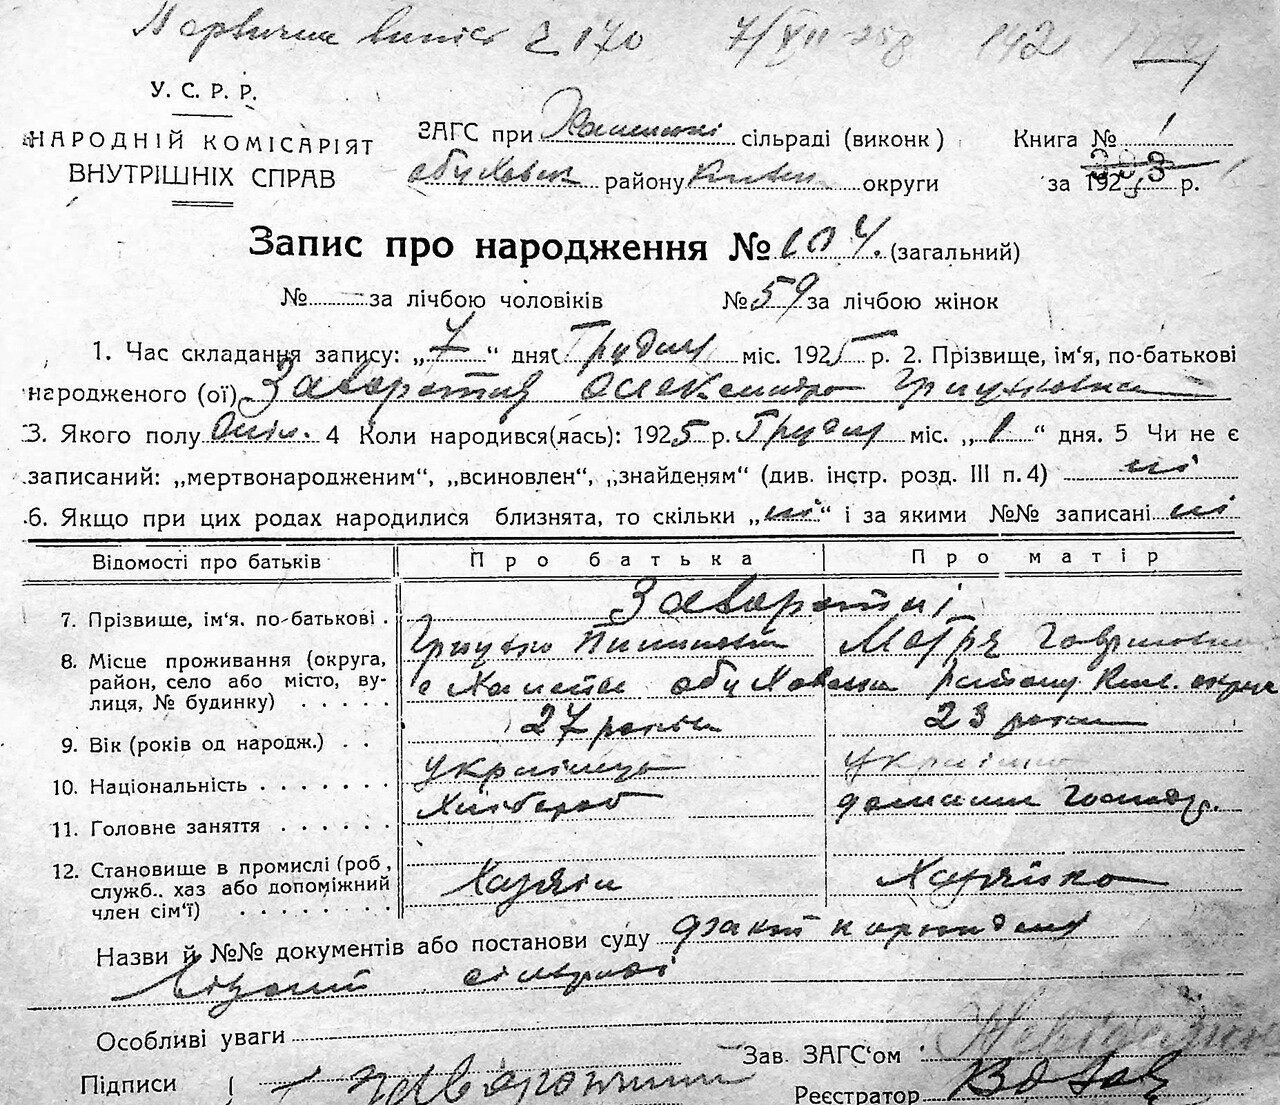 Первична випис 170 7/VII-258 142
У. С. Р. Р.
НАРОДНІЙ КОМІСАРІЯТ
ВНУТРІШНІХ СПРАВ
ЗАГС при сільраді (виконк)
Обуховск району Київ округи
Книга № 1
за 1925 р.
Запис про народження № 104. (загальний)
№ за лічбою чоловіків № 59 за лічбою жінок
1. Час складання запису: „7“ дня Грудня міс. 1925 р. 2. Прізвище, ім'я, по-батькові
народженого (ої) Заворотня Олександра Грицьковна
3. Якого полу Жін. 4 Коли народився(лась): 1925 р. Грудня міс. „1“ дня. 5 Чи не є
записаний: „мертвонародженим“, „всиновлен“, „знайденям“ (див. інстр. розд. III п. 4) ні
6. Якщо при цих родах народилися близнята, то скільки „ні“ і за якими №№ записані ні
Відомості про батьків Про батька Про матір
7. Прізвище, ім'я. по-батькові . Заворотні
Грицько Мотря Гавриловна
8. Місце проживання (округа, район, село або місто, вулиця, № будинку) . . . . . Обуховськ району Київ. округи
9. Вік (років од народж.) . . 27 років 23 роки
10. Національність . . . . . . . українець українка
11. Головне заняття . . . . . . Хлібороб домашнє господ.
12. Становище в промислі (роб, служб.. хаз або допоміжний член сім'ї) . . . . . . . . Хазяїн Хазяйка
Назви й №№ документів або постанови суду факт народження
відомий сільраді
Особливі уваги
Зав. ЗАГС'ом
Підписи { Заворотний
Реєстратор